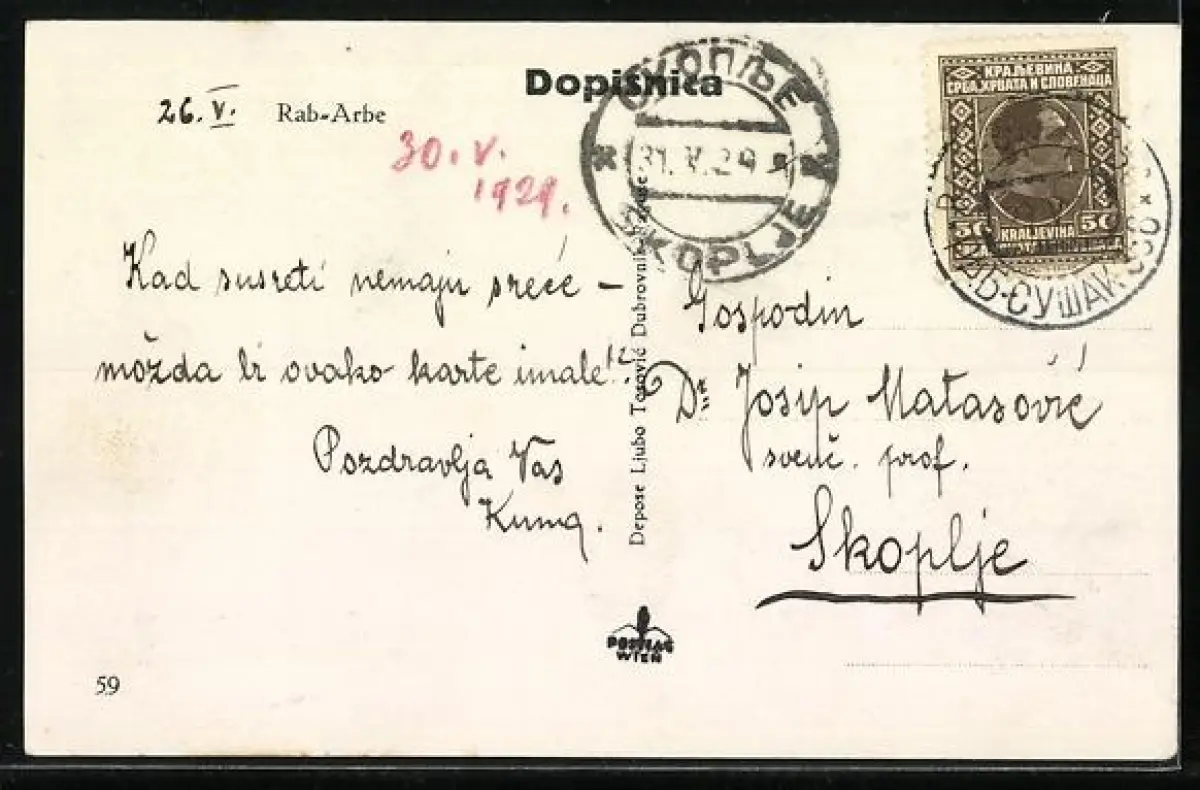 Dopisnica
26. V. Rab-Arbe
30. V.
1929.
Kad susreti nemaju sreće –
možda bi ovako karte imale!?
Pozdravlja Vas
Kuma.
59
СКОПЉЕ
31.V.29
SKOPLJE
Depose Ljubo Tošović Dubrovnik
POSTIAG
WIEN
КРАЉЕВИНА
СРБА, ХРВАТА И СЛОВЕНАЦА
50 50
KRALJEVINA
РАБ-СУШАК
Gospodin
Dr. Josip Matasović
sveuč. prof.
Skoplje